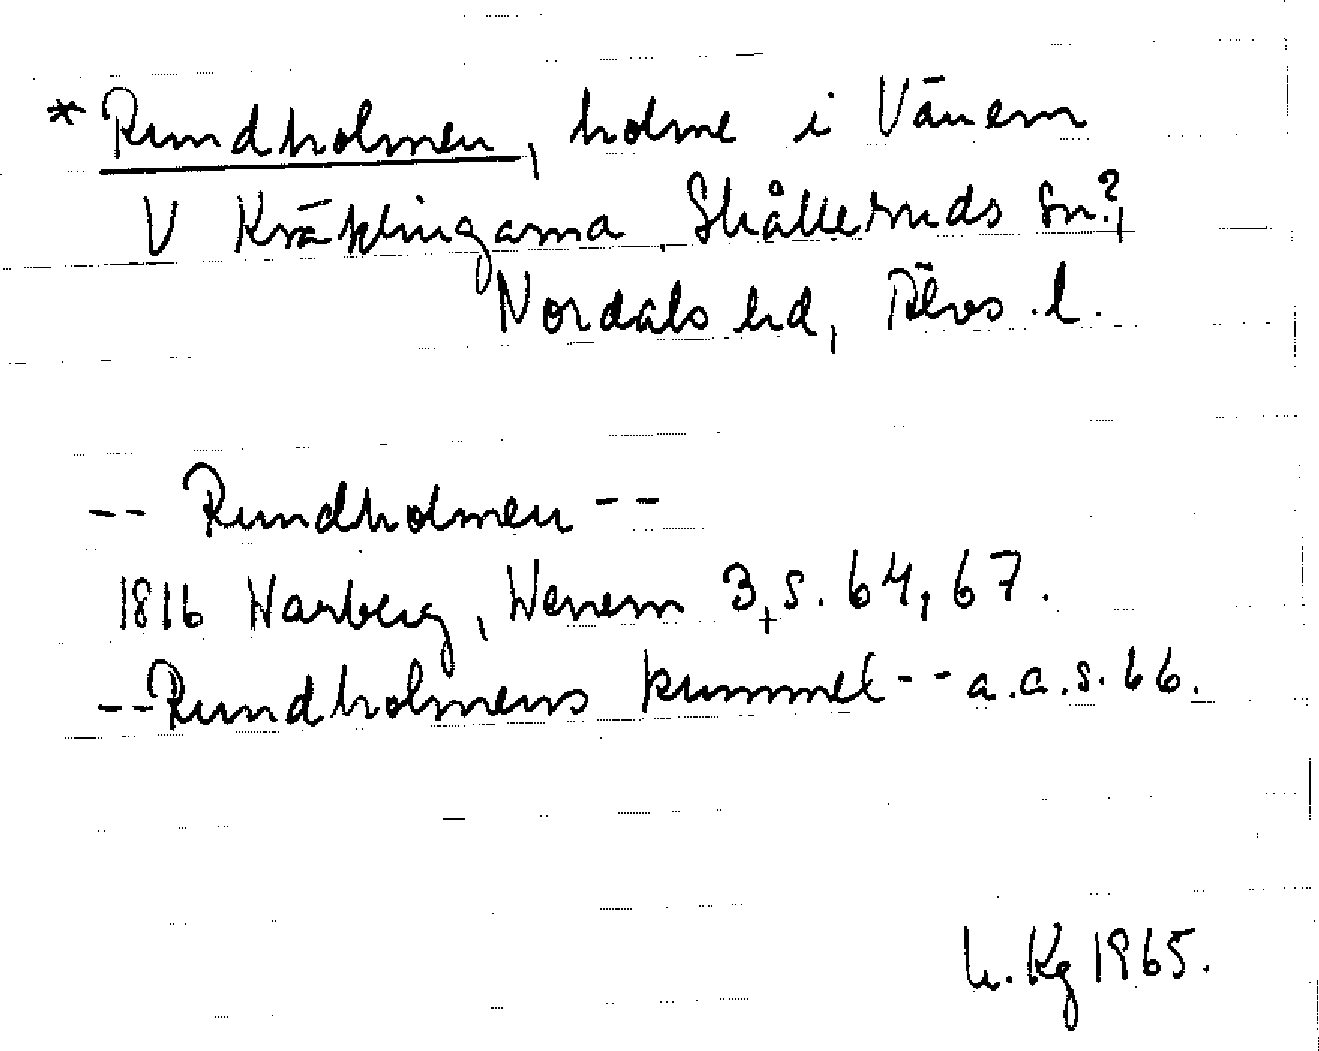 * Rundholmen, holme i Vänern
V Kräklingarna, Skålleruds sn?,
Nordals hd, Älvs. l.
-- Rundholmen --
1816 Warberg, Wenern 3, s. 64, 67.
-- Rundholmens kummel -- a.a.s. 66.
Kg 1965.